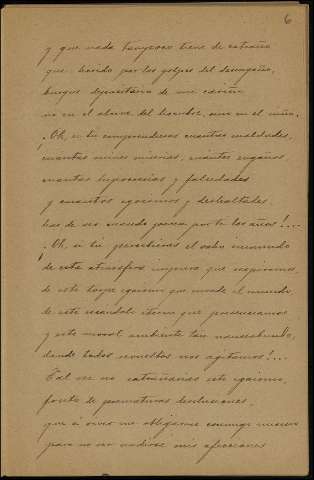 6
y que nada tampoco tiene de extraño
que, herido por los golpes del desengaño,
busque depositaria de mi cariño
no en el alma del hombre, sino en el niño.
¡Oh, si tu comprendieras cuantas maldades,
cuantas miserias, cuantos engaños,
cuantas hipocresías y falsedades
y cuantos egoismos y deslealtades
has de ver cuando pasen por ti los años!...
¡Oh, si tú percibieras el vaho
de esta atmósfera impura que respiramos,
de este torpe egoismo que invade el mundo,
de este escándalo eterno que presenciamos
y este moral ambiente tan nauseabundo,
donde todos revueltos nos agitamos!...
Tal vez no extrañarias este egoismo,
fruto de prematuras desilusiones,
que á vivir me obligan conmigo mismo
para no ver mis afecciones